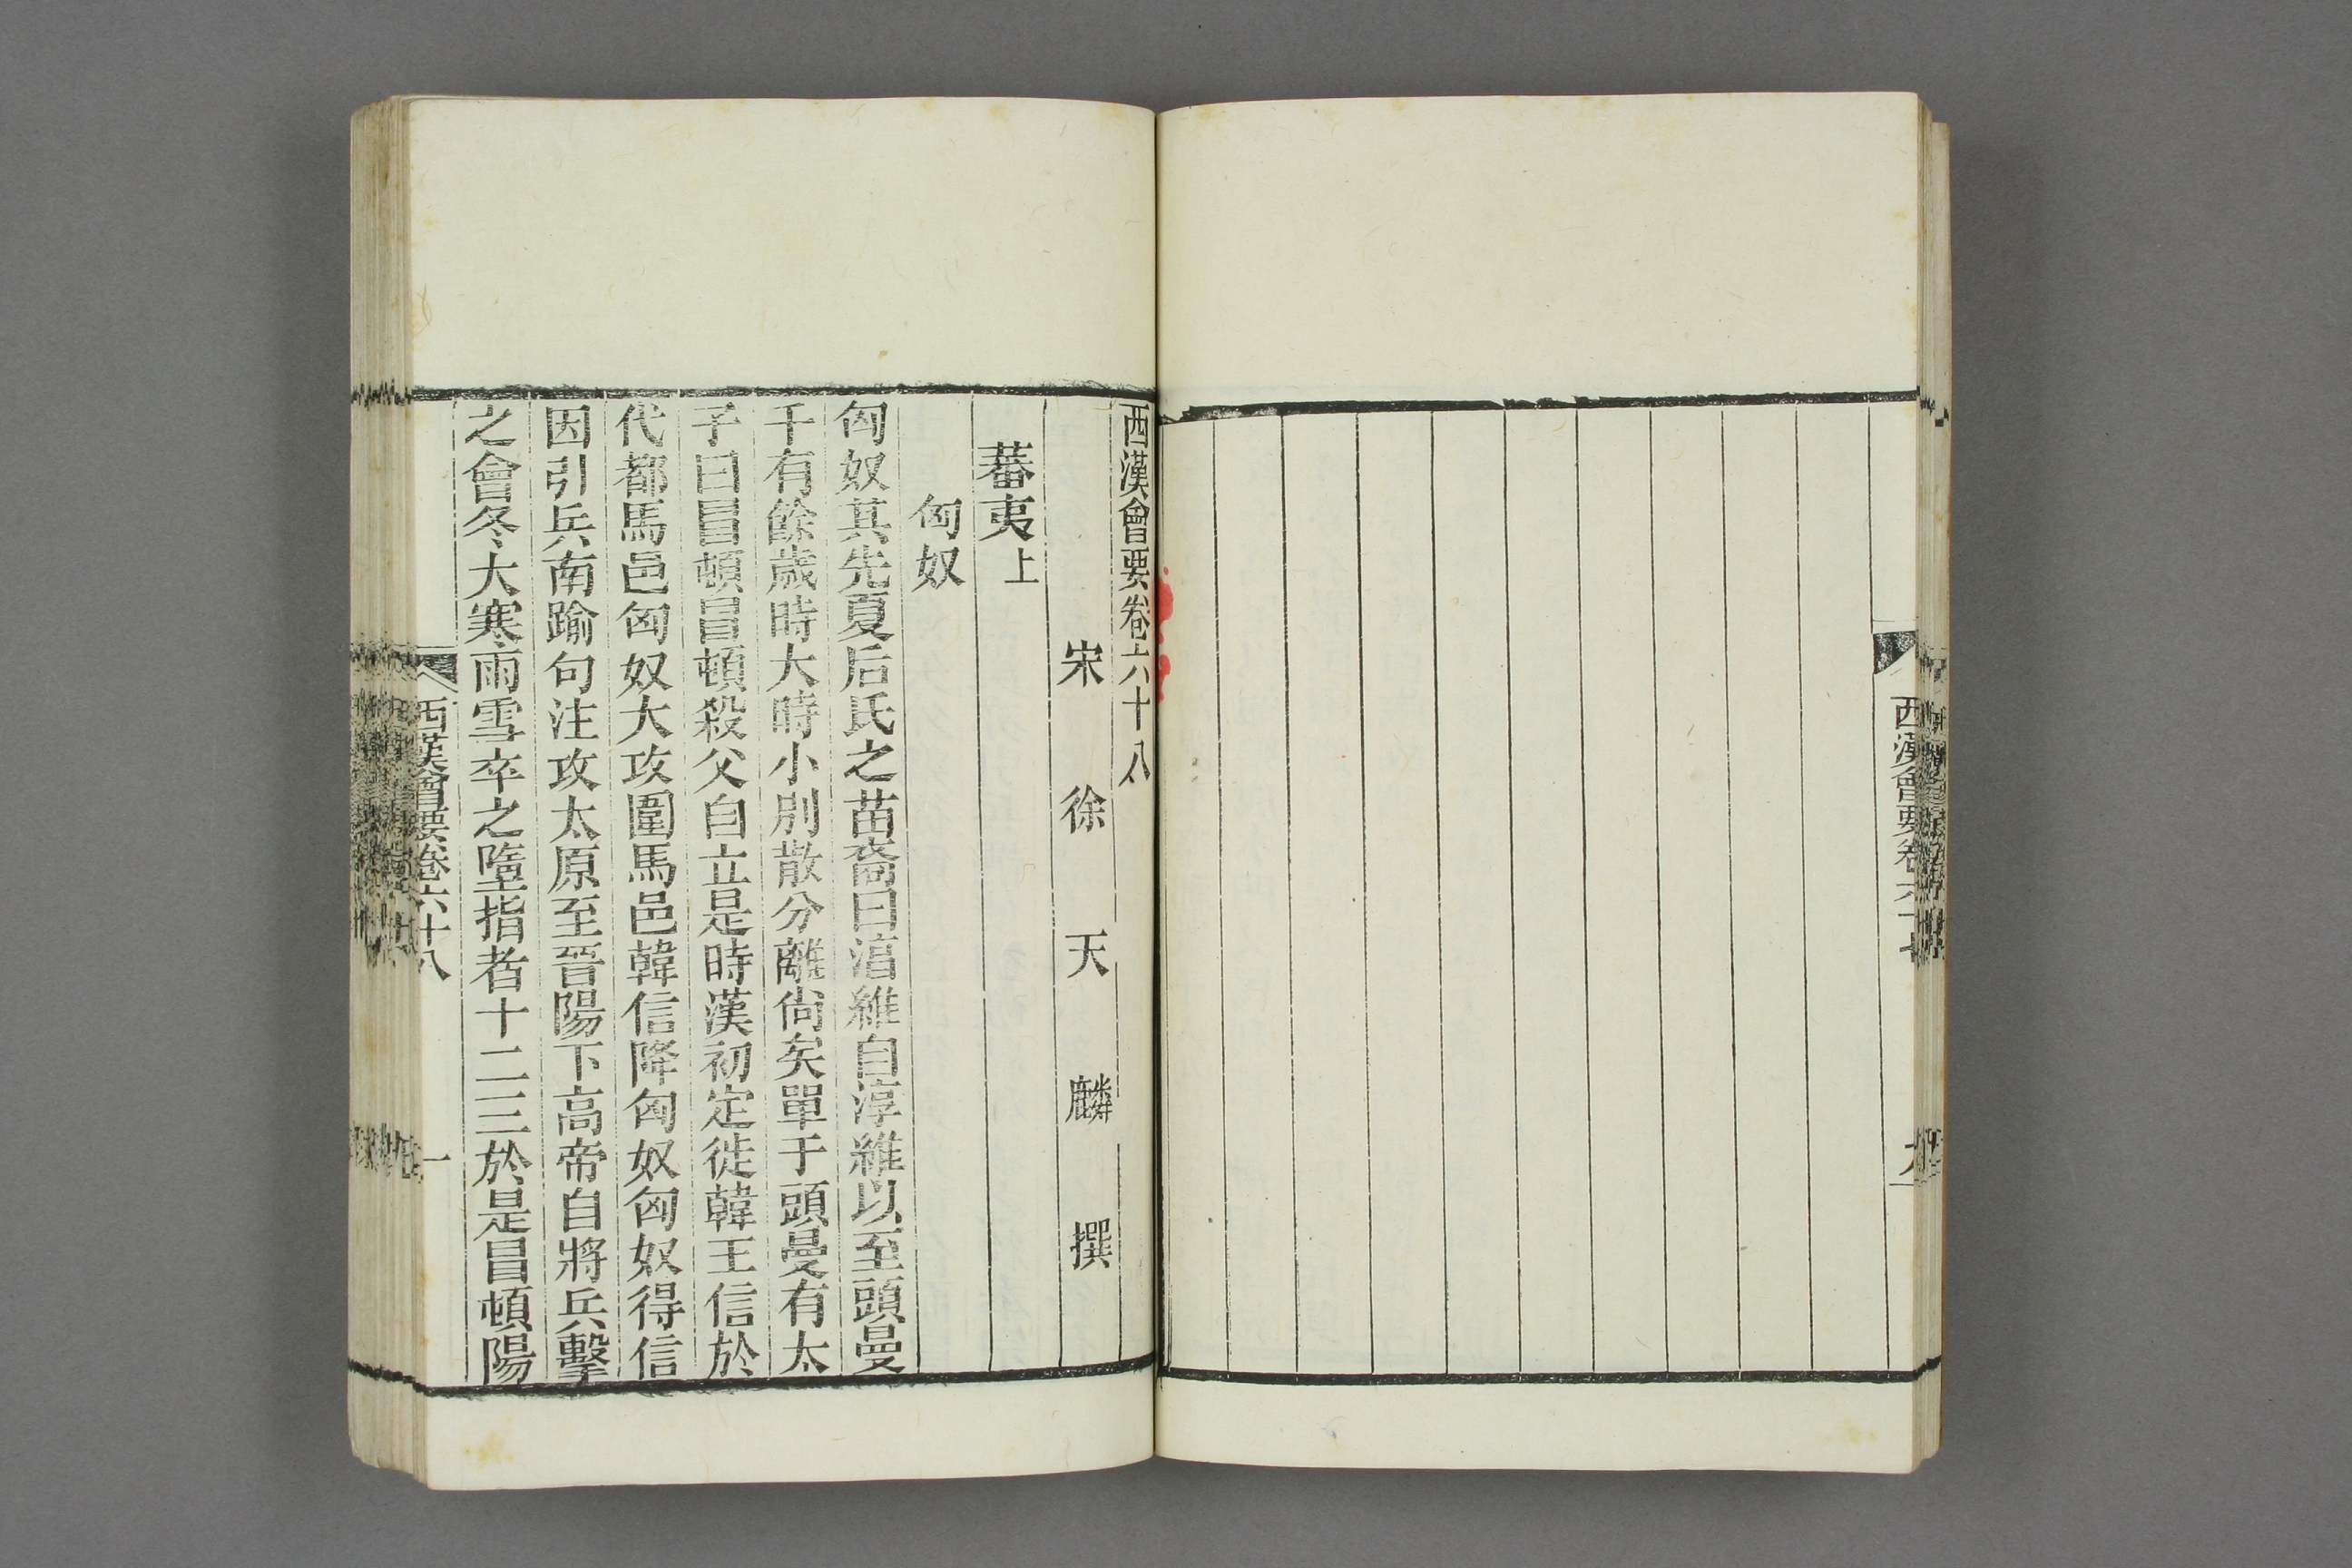 西漢會要卷六十七
九
西漢會要卷六十八
宋徐天麟撰
蕃夷上
匈奴
匈奴其先夏后氏之苗裔曰淳維自淳維以至頭曼
千有餘歲時大時小別散分離尙矣單于頭曼有太
子曰冒頓冒頓殺父自立是時漢初定徙韓王信於
代都馬邑匈奴大攻圍馬邑韓信降匈奴匈奴得信
因引兵南踰句注攻太原至晉陽下高帝自將兵擊
之會冬大寒雨雪卒之墮指者十二三於是冒頓陽
西漢會要卷六十八
一